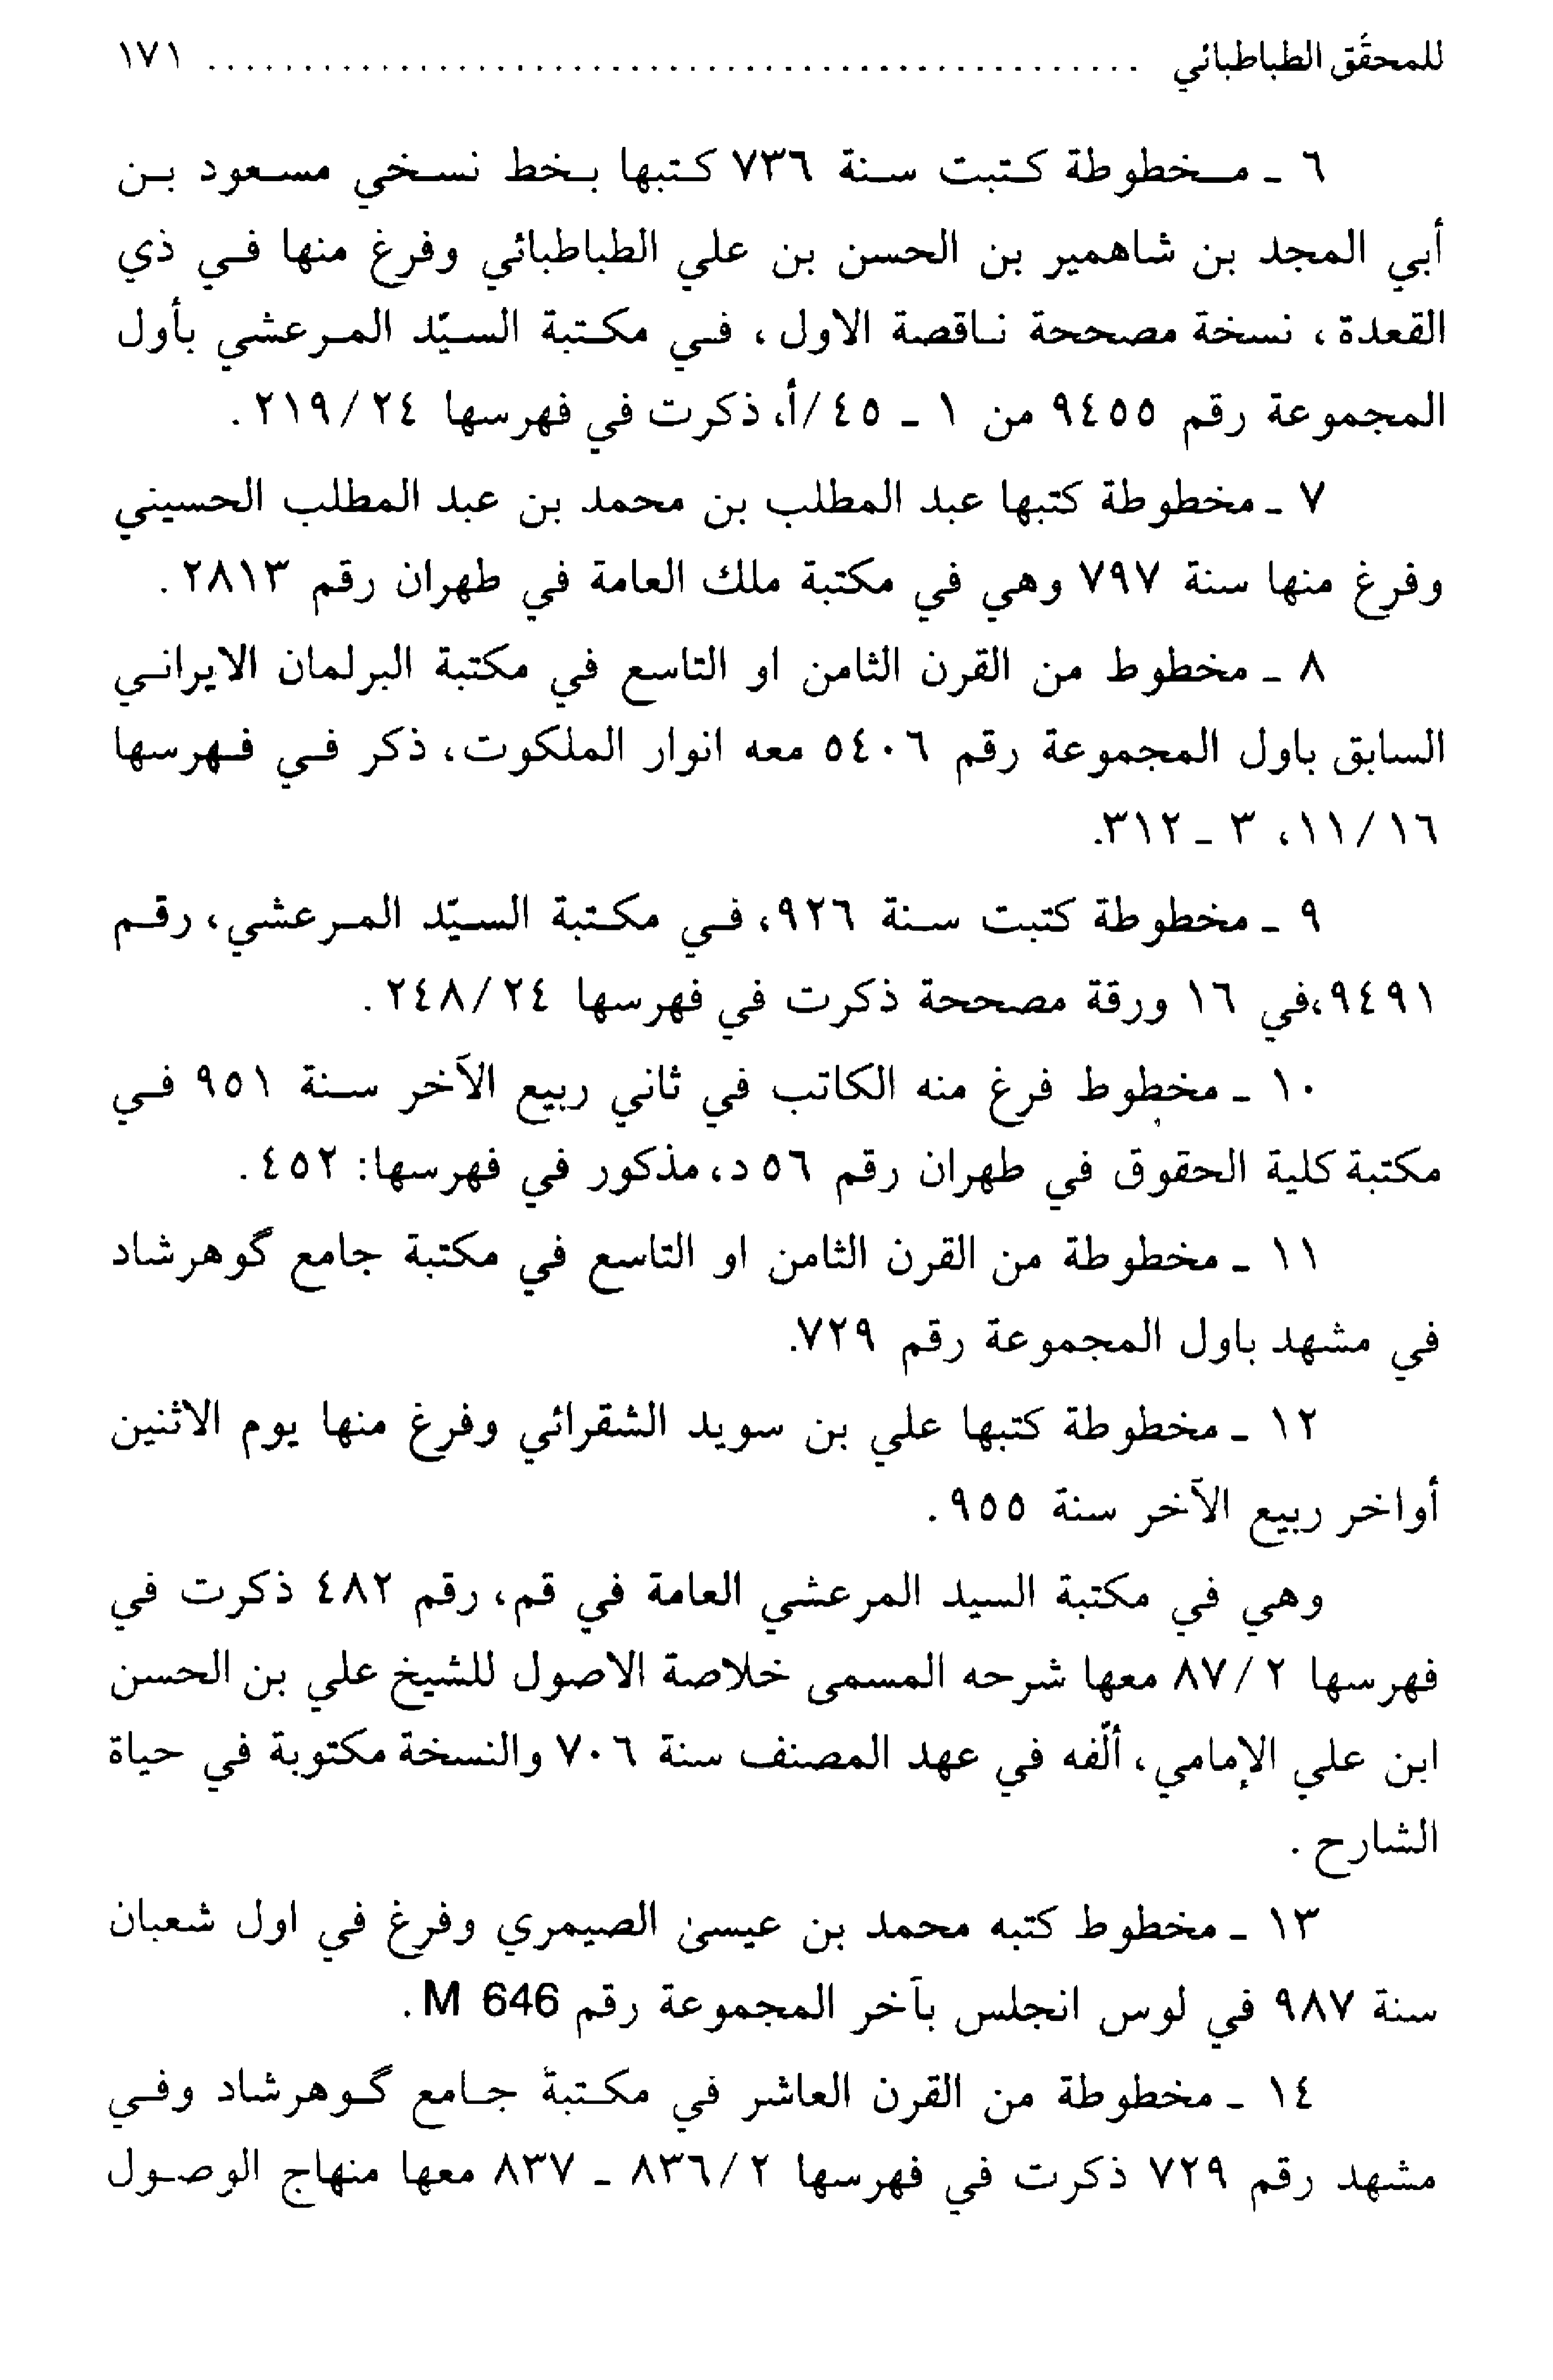 للمحقّق الطباطبائي ................................................ ١٧١
٦ ـ مخطوطة كتبت سنة ٧٣٦ كتبها بخط نسخي مسعود بن
أبي المجد بن شاهمير بن الحسن بن علي الطباطبائي وفرغ منها في ذي
القعدة ، نسخة مصححة ناقصة الاول ، في مكتبة السيّد المرعشي بأول
المجموعة رقم ٩٤٥٥ من ١ ـ ٤٥/أ، ذكرت في فهرسها ٢٤/ ٢١٩ .
٧ ـ مخطوطة كتبها عبد المطلب بن محمد بن عبد المطلب الحسيني
وفرغ منها سنة ٧٩٧ وهي في مكتبة ملك العامة في طهران رقم ٢٨١٣ .
٨ ـ مخطوط من القرن الثامن او التاسع في مكتبة البرلمان الايراني
السابق باول المجموعة رقم ٥٤٠٦ معه انوار الملكوت، ذكر في فهرسها
١٦/ ١١، ٣ ـ ٣١٢.
٩ ـ مخطوطة كتبت سنة ٩٢٦، في مكتبة السيّد المرعشي، رقم
٩٤٩١،في ١٦ ورقة مصححة ذكرت في فهرسها ٢٤/ ٢٤٨ .
١٠ ـ مخطوط فرغ منه الكاتب في ثاني ربيع الآخر سنة ٩٥١ في
مكتبة كلية الحقوق في طهران رقم ٥٦ د، مذكور في فهرسها: ٤٥٢ .
١١ ـ مخطوطة من القرن الثامن او التاسع في مكتبة جامع گوهرشاد
في مشهد باول المجموعة رقم ٧٢٩.
١٢ ـ مخطوطة كتبها علي بن سويد الشقرائي وفرغ منها يوم الاثنين
أواخر ربيع الآخر سنة ٩٥٥ .
وهي في مكتبة السيد المرعشي العامة في قم، رقم ٤٨٢ ذكرت في
فهرسها ٢/ ٨٧ معها شرحه المسمى خلاصة الاصول للشيخ علي بن الحسن
ابن علي الإمامي، ألّفه في عهد المصنف سنة ٧٠٦ والنسخة مكتوبة في حياة
الشارح .
١٣ ـ مخطوط كتبه محمد بن عيسىٰ الصيمري وفرغ في اول شعبان
سنة ٩٨٧ في لوس انجلس بآخر المجموعة رقم M 646 .
١٤ ـ مخطوطة من القرن العاشر في مكتبة جامع گوهرشاد وفي
مشهد رقم ٧٢٩ ذكرت في فهرسها ٢/ ٨٣٦ ـ ٨٣٧ معها منهاج الوصول